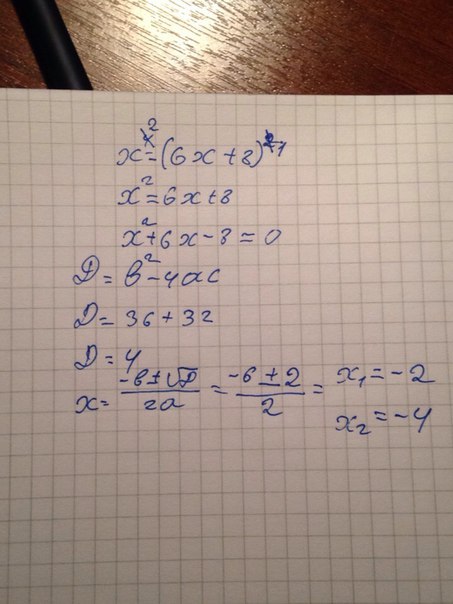 x⁴² = (6x + 8)²¹
x² = 6x + 8
x² + 6x - 8 = 0
D = b² - 4ac
D = 36 + 32
D = 4
x = (-b ± √D) / 2a = (-6 ± 2) / 2 = x₁ = -2
x₂ = -4